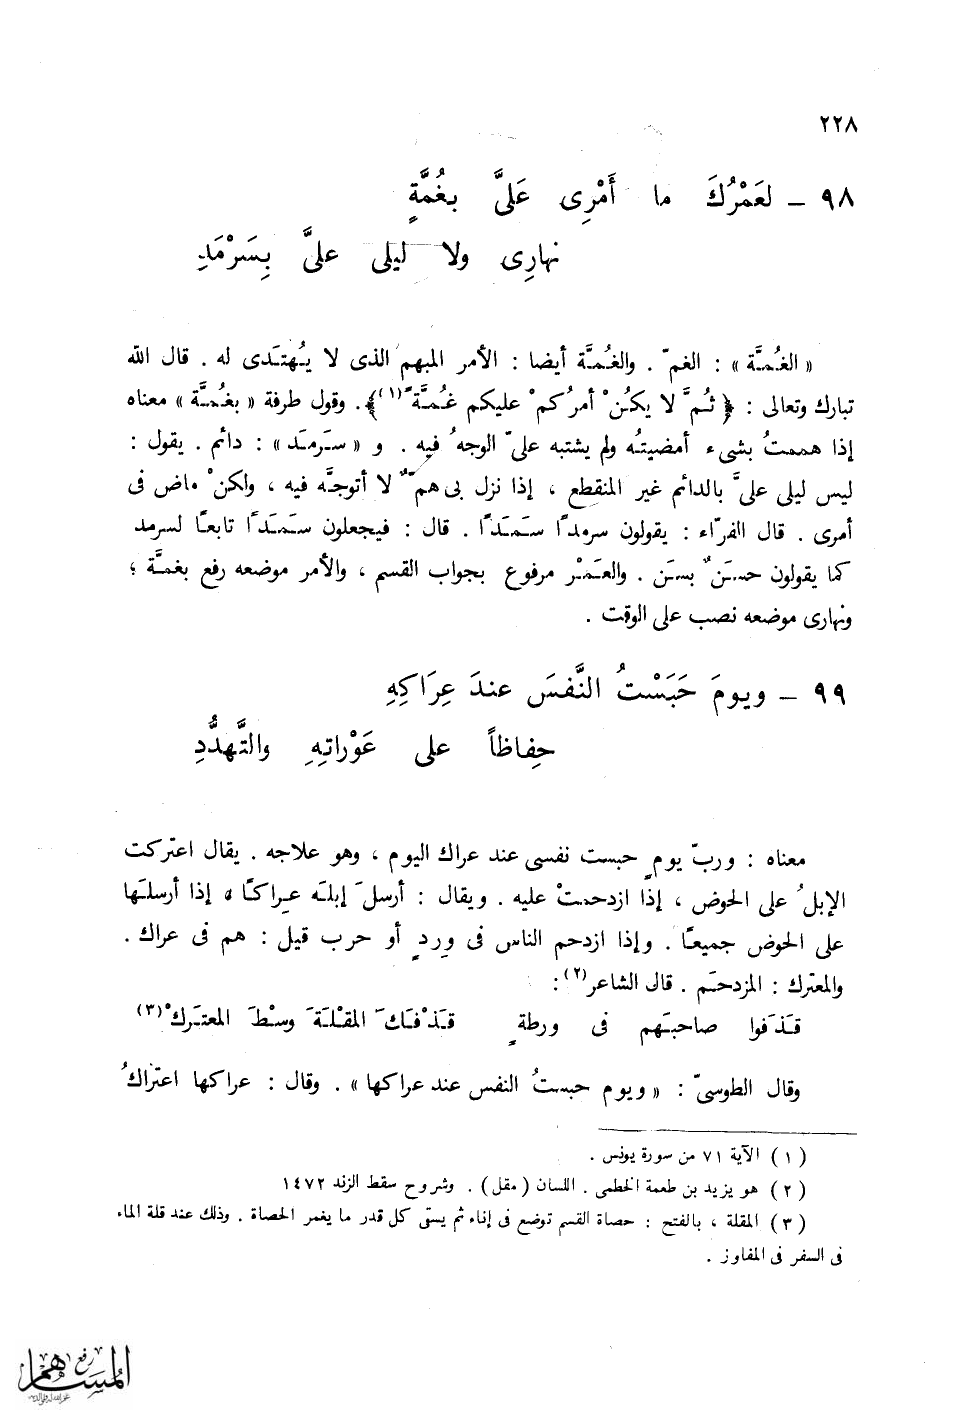 ٢٢٨
٩٨ ــ لعَمْرُكَ ما أَمْرِى عَلَىَّ بغُمَّةٍ
نهارِى ولا ليلى علىَّ بِسَرْمَدِ
« الغُمَّة » : الغمّ . والغُمَّة أيضا : الأمر المبهم الذى لا يُهتَدى له . قال الله
تبارك وتعالى : ﴿ ثُمَّ لا يكُنْ أمرُكمْ عليكم غُمَّةً (١) ﴾ . وقول طرفة « بغُمَّة » معناه
إذا هممتُ بشىء أمضيتُه ولم يشتبه علىّ الوجهُ فيه . و « سَرمَد » : دائم . يقول :
ليس ليلى علىَّ بالدائم غير المنقطع ، إذا نزل بى همٌّ لا أتوجَّه فيه ، ولكنْ ماض فى
أمرى . قال الفرّاء : يقولون سرمدًا سَمَدًا . قال : فيجعلون سَمَدًا تابعًا لسرمد
كما يقولون حسَنٌ بسَن . والعَمْر مرفوع بجواب القسم ، والأمر موضعه رفع بغمَّة ؛
ونهارى موضعه نصب على الوقت .
٩٩ ــ ويومَ حَبَسْتُ النَّفسَ عندَ عِرَاكِهِ
حِفاظاً على عَوْراتِهِ والتَّهدُّدِ
معناه : وربّ يومٍ حبست نفسى عند عراك اليوم ، وهو علاجه . يقال اعتركت
الإبلُ على الحوض ، إذا ازدحمتْ عليه . ويقال : أرسلَ إبلَه عِراكًا ، إذا أرسلَها
على الحوض جميعًا . وإذا ازدحم الناس فى وِردٍ أو حرب قيل : هم فى عراك .
والمعترك : المزدحَم . قال الشاعر (٢) :
قَذَفوا صاحبَهم فى ورطةٍ قَذْفَكَ المَقْلَةَ وسْطَ المعترَكْ (٣)
وقال الطوسىّ : « ويوم حبستُ النفس عند عراكها » . وقال : عراكها اعتراكُ
(١) الآية ٧١ من سورة يونس .
(٢) هو يزيد بن طعمة الخطمى . اللسان ( مقل ) . وشروح سقط الزند ١٤٧٢
(٣) المقلة ، بالفتح : حصاة القسم توضع فى إناء ثم يسقى كل قدر ما يغمر الحصاة . وذلك عند قلة الماء
فى السفر فى المفاوز .